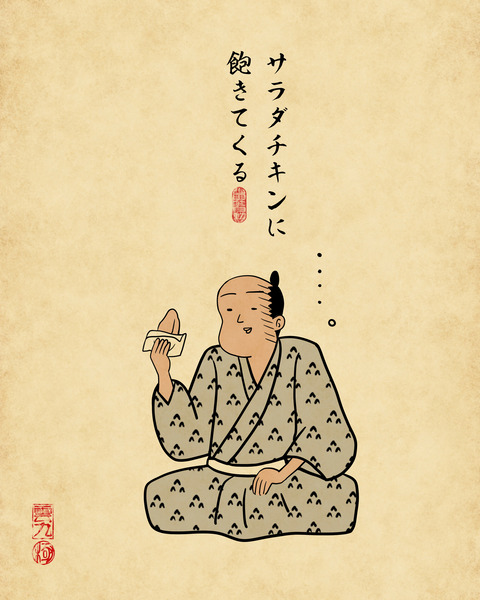 サラダチキンに
飽きてくる